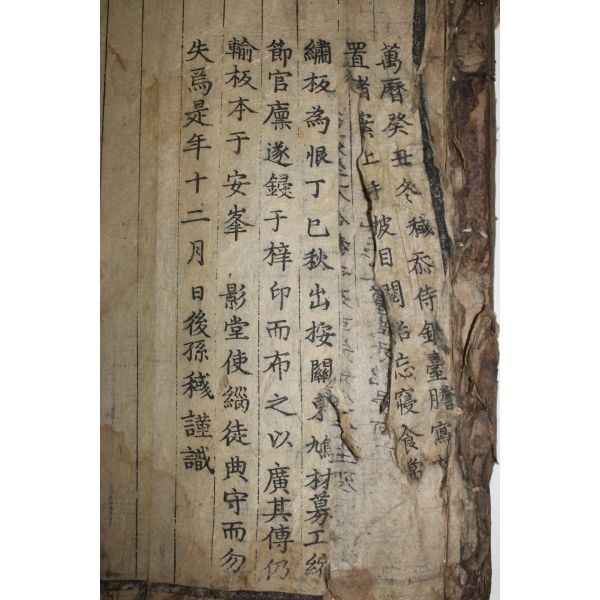 萬曆癸丑冬䅏忝侍銀臺謄寫
置諸案上時披目閱殆忘寢食
繡板為恨丁巳秋出按關東鳩材募工統
節官廩遂鋟于梓印而布之以廣其傳仍
輸板本于安峯 影堂使緇徒典守而勿
失焉是年十二月 日後孫䅏謹識